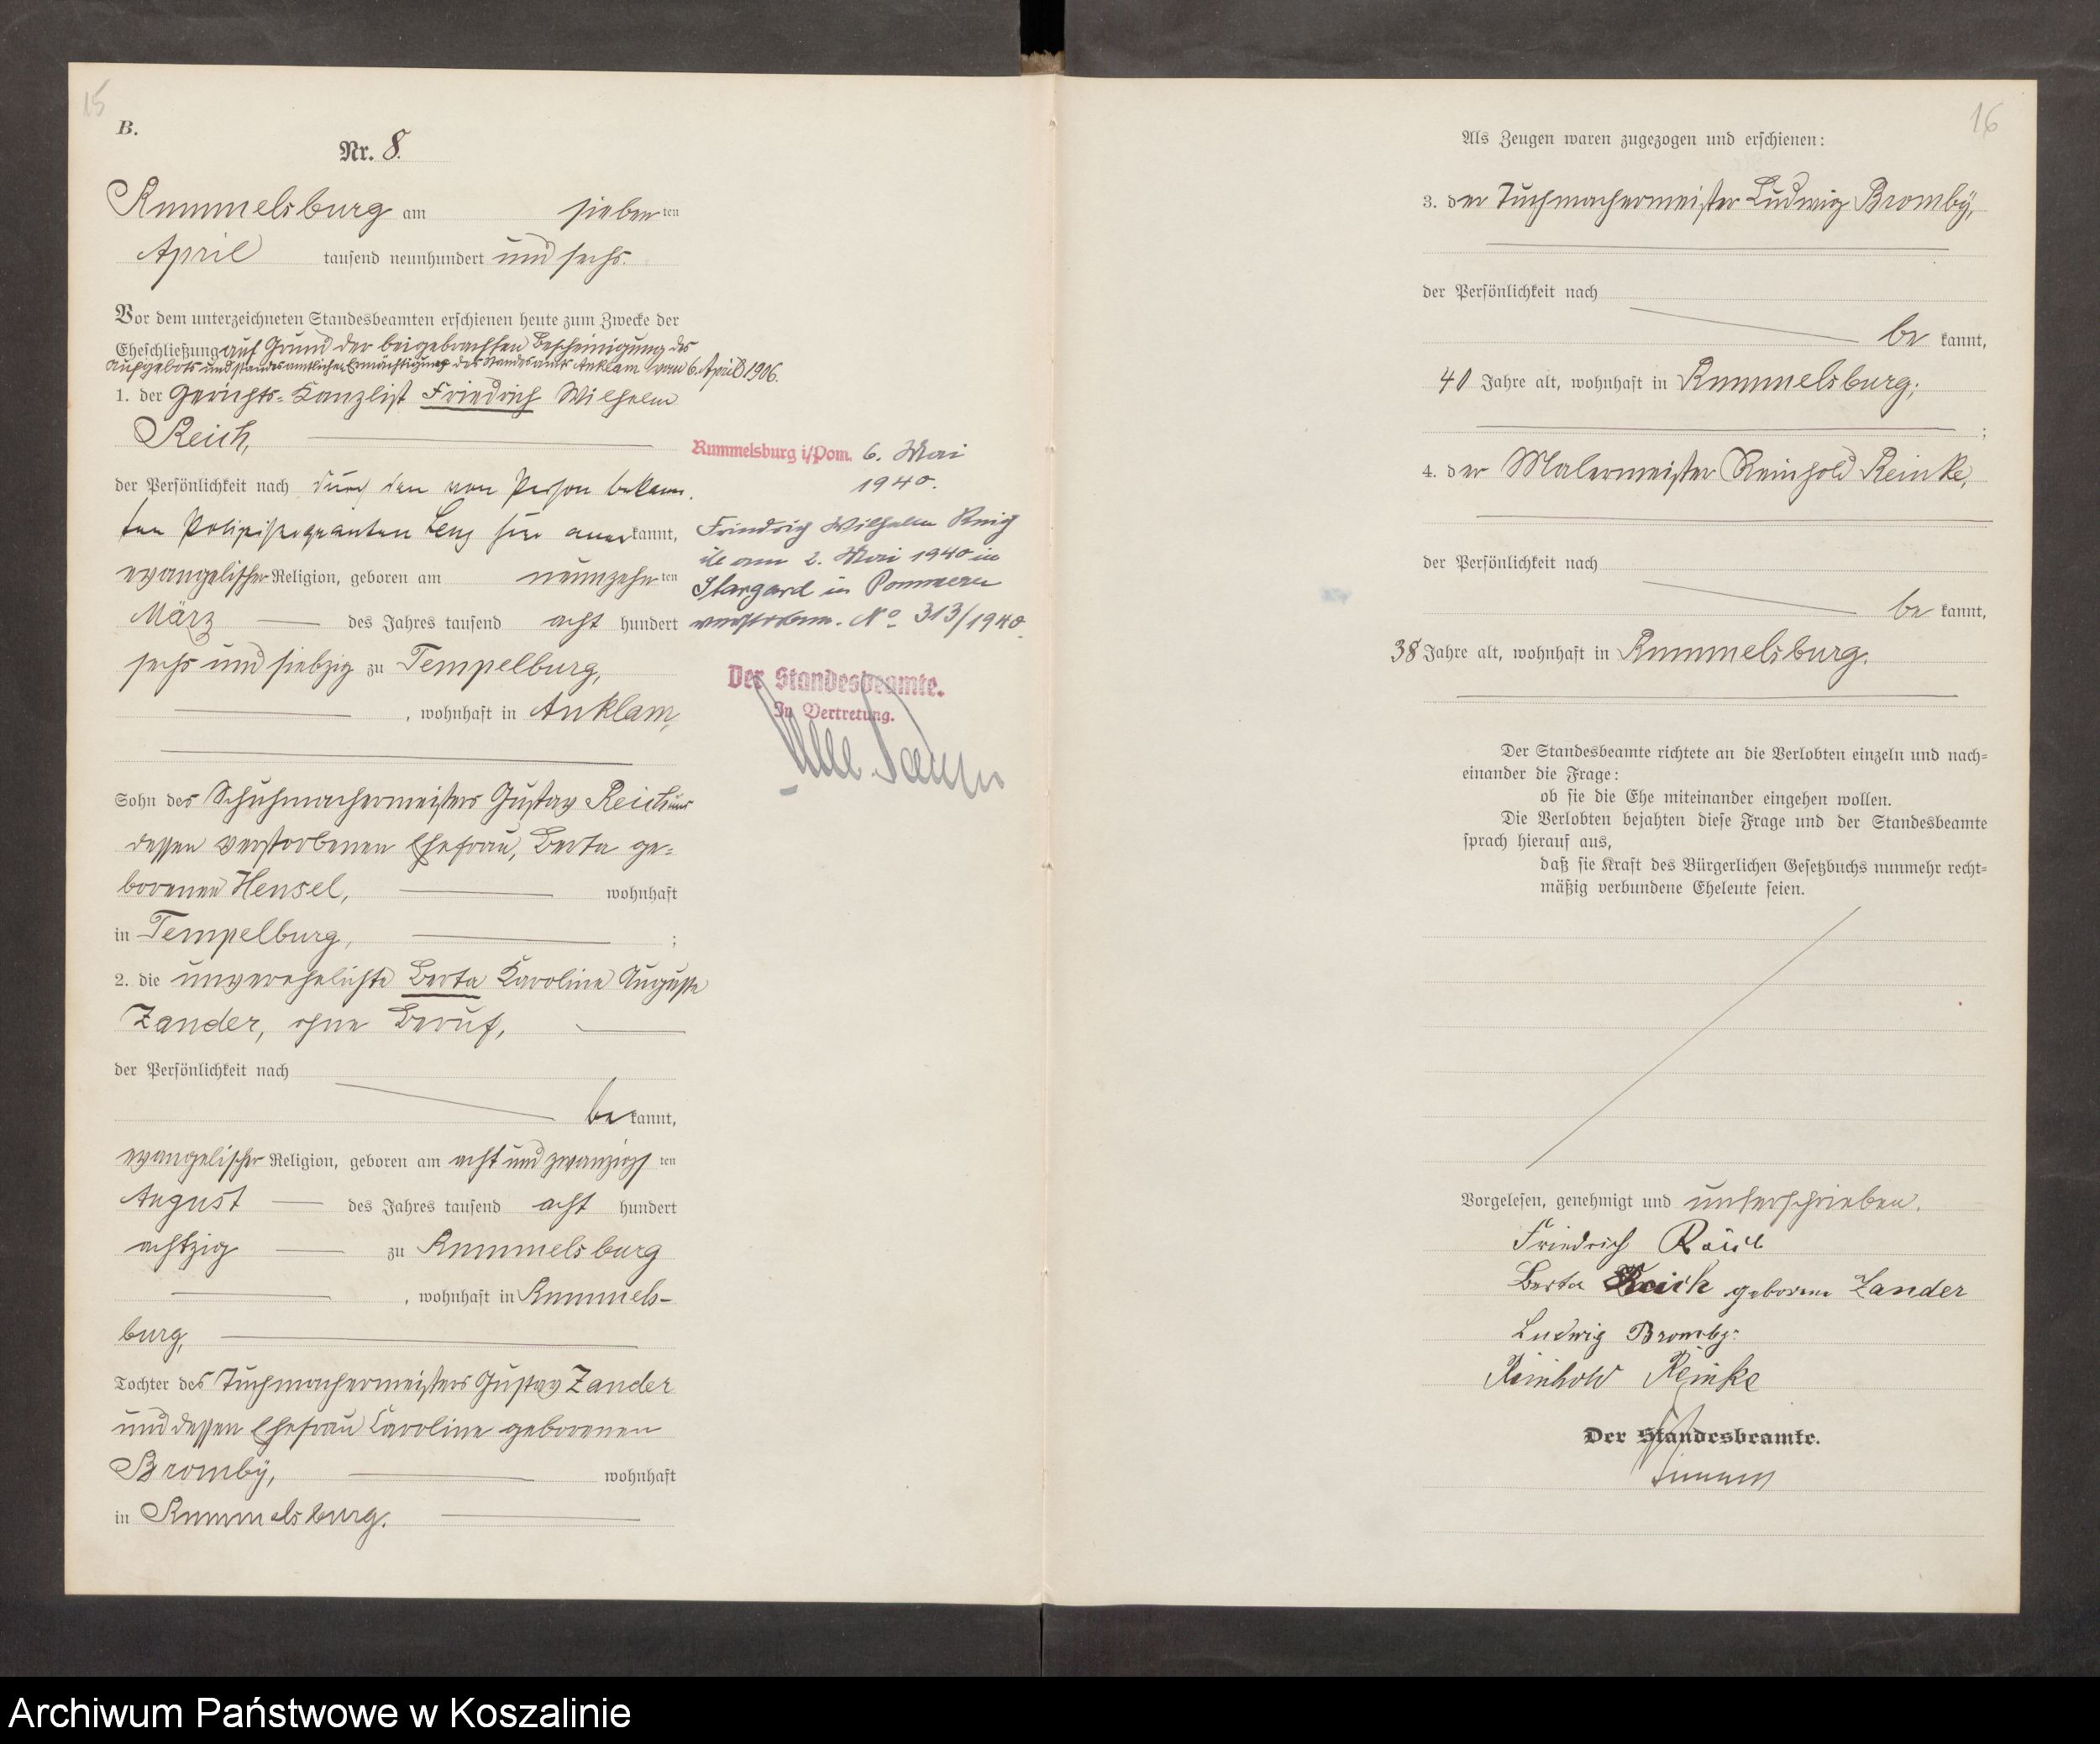 15
B.
Nr. 8.
Rummelsburg am siebenten
April tausend neunhundert und sechs.
Vor dem unterzeichneten Standesbeamten erschienen heute zum Zwecke der
Eheschließung auf Grund der beigebrachten Bescheinigung des
Aufgebots und standesamtlicher Ermächtigung des Standesamts Anklam vom 6. April 1906.
1. der Gerichts-Kanzlist Friedrich Wilhelm
Reich,
der Persönlichkeit nach durch den von Person bekann-
ten Polizeisergeanten Lenz hier anerkannt,
evangelischer Religion, geboren am neunzehnten
März des Jahres tausend acht hundert
sechs und siebzig zu Tempelburg,
, wohnhaft in Anklam,
Sohn des Schuhmachermeisters Gustav Reich und
dessen verstorbenen Ehefrau, Berta ge-
borenen Hensel, wohnhaft
in Tempelburg, ;
2. die unverehelichte Berta Karoline Auguste
Zander, ohne Beruf,
der Persönlichkeit nach
bekannt,
evangelischer Religion, geboren am acht und zwanzigsten
August des Jahres tausend acht hundert
achtzig zu Rummelsburg
, wohnhaft in Rummels-
burg,
Tochter des Tuchmachermeisters Gustav Zander
und dessen Ehefrau Caroline geborenen
Bromby, wohnhaft
in Rummelsburg.
Rummelsburg i/Pom. 6. Mai
1940.
Friedrich Wilhelm Reich
ist am 2. Mai 1940 in
Stargard in Pommern
verstorben. No 313/1940.
Der Standesbeamte.
In Vertretung.
16
Als Zeugen waren zugezogen und erschienen:
3. der Tuchmachermeister Ludwig Bromby,
der Persönlichkeit nach
bekannt,
40 Jahre alt, wohnhaft in Rummelsburg;
;
4. der Malermeister Reinhold Reinke,
der Persönlichkeit nach
bekannt,
38 Jahre alt, wohnhaft in Rummelsburg.
Der Standesbeamte richtete an die Verlobten einzeln und nach-
einander die Frage:
ob sie die Ehe miteinander eingehen wollen.
Die Verlobten bejahten diese Frage und der Standesbeamte
sprach hierauf aus,
daß sie kraft des Bürgerlichen Gesetzbuchs nunmehr recht-
mäßig verbundene Eheleute seien.
Vorgelesen, genehmigt und unterschrieben.
Friedrich Reich
Berta Reich geborene Zander
Ludwig Bromby
Reinhold Reinke
Der Standesbeamte.
Archiwum Państwowe w Koszalinie